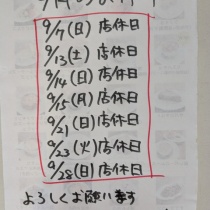 9/7(日)店休日
9/13(土)店休日
9/14(日)店休日
9/15(月)店休日
9/21(日)店休日
9/23(火)店休日
9/28(日)店休日
よろしくお願います